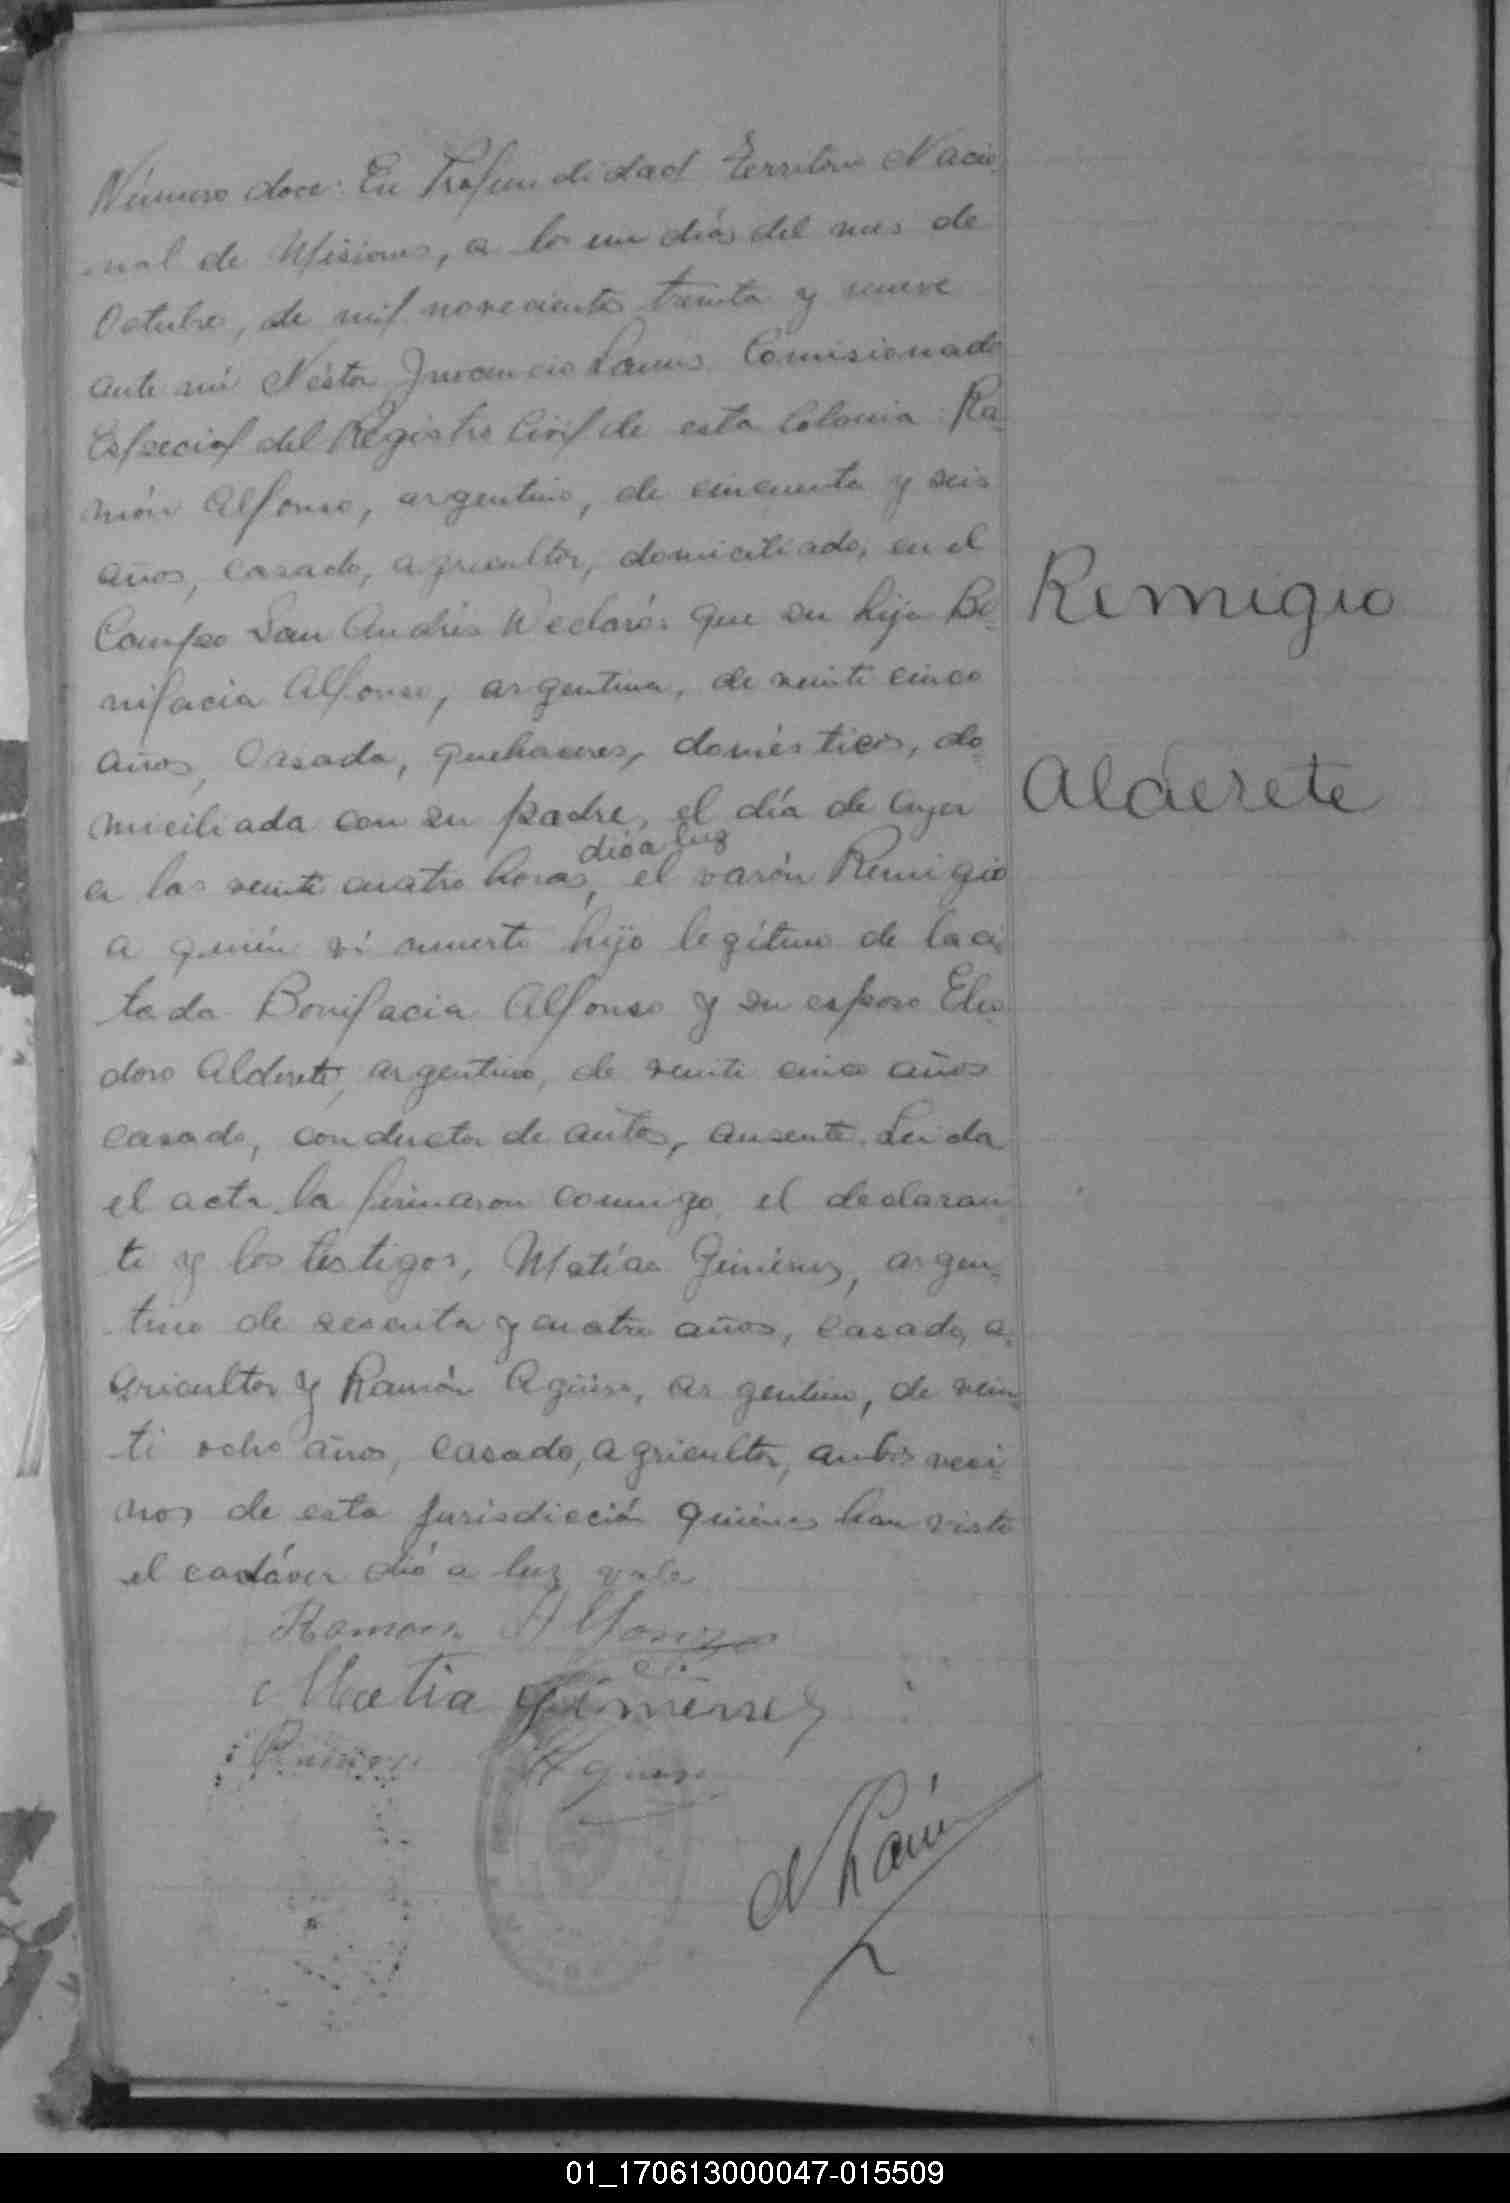 Número doce: En Profundidad Territorio Nacio-
nal de Misiones, a los un días del mes de
Octubre, de mil novecientos treinta y nueve
ante mí Néstor Inocencio Lanús Comisionado
Especial del Registro Civil de esta Colonia: Ra-
món Alfonso, argentino, de cincuenta y seis
años, casado, agricultor, domiciliado, en el
Campo San Andrés Declaró: que su hija Bo-
nifacia Alfonso, argentina, de veinti cinco
años, Casada, quehaceres, domésticos, do-
miciliada con su padre, el día de ayer
dió a luz
a las veinti cuatro horas, el varón Remigio
a quién ví muerto hijo legítimo de la ci-
tada Bonifacia Alfonso y su esposo Elio
doro Alderete, argentino, de veinti cinco años
casado, conductor de autos, ausente. Leida
el acta la firmaron conmigo el declaran
te y los testigos, Matías Giménez, argen-
tino de sesenta y cuatro años, casado, a-
gricultor y Ramón Agüero, argentino, de vein-
ti ocho años, casado, agricultor, ambos veci-
nos de esta jurisdicción quiénes han visto
el cadáver dió a luz vale
Remigio
Alderete
Ramon Alfonzo
Matia Gimenez
Ramon Aguero
N Lanús
01_170613000047-015509